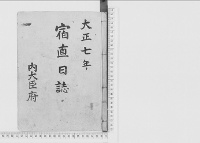 大正七年
宿直日誌
内大臣府